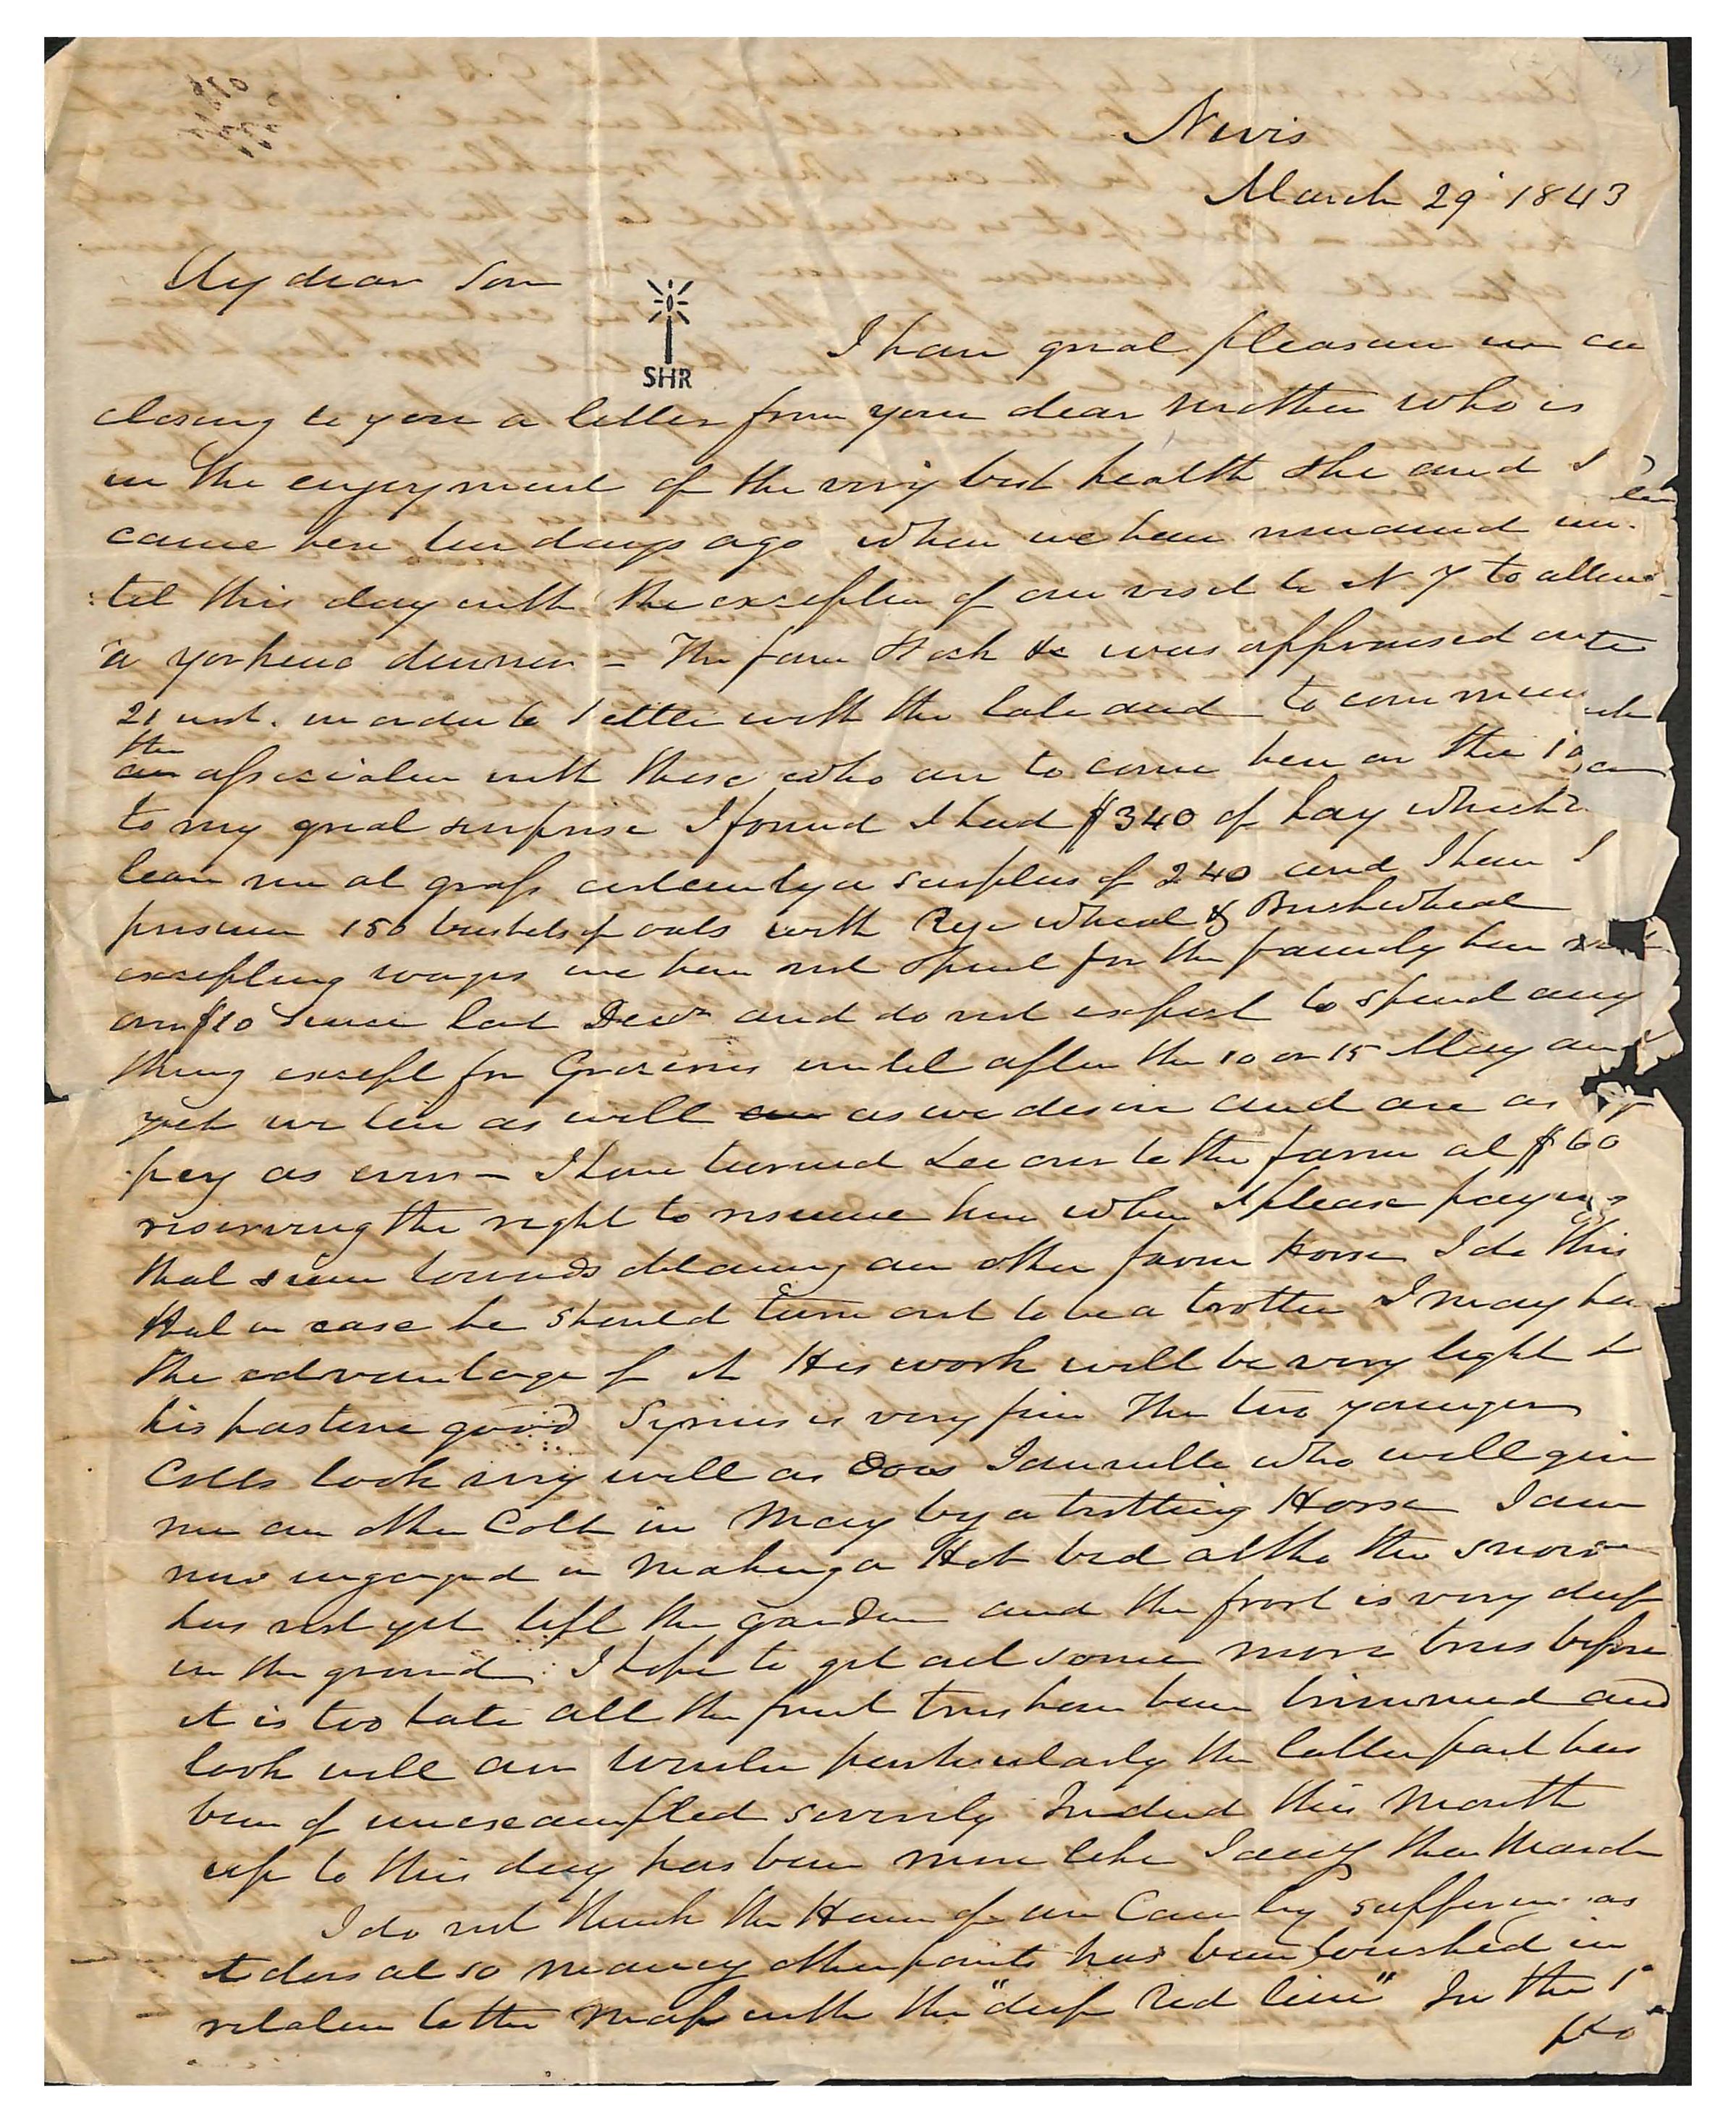 Nevis
March 29 1843
My dear Son
SHR
I have great pleasure in en
closing to you a letter from your dear Mother who is
in the enjoyment of the very best health She and I
came here ten days ago when we have remained un-
:til this day with the exception of one visit to N Y to attend
a dinner - The farm Stock &c was appraised on the
21 inst. in order to settle with the late and to commence
the
an association with those who are to come here on the 10
to my great surprise I found I had $340 of hay which
leave me at grass certainly a surplus of 240 and I have I
presume 150 bushels of oats with Rye Wheat & Buckwheat
excepting wages we have not spent for the family here
over $10 since last Decr and do not expect to spend any
thing except for Groceries until after the 10 or 15 May and
yet we live as well as we desire and are as hap
:py as ever - I have turned Lee over to the farm at $60
reserving the right to resume him when I please paying
that sum towards obtaining an other farm Horse I do this
that in case he should turn out to be a trotter I may have
the advantage of it His work will be very light &
his pasture good Syrius is very fine The two younger
Colts look very well as does who will give
me an other Colt in May by a trotting Horse I am
now engaged in making a Hot bed altho the snow
has not yet left the garden and the frost is very deep
in the ground. I hope to get out some more trees before
it is too late all the fruit trees have been trimmed and
look well our winter particularly the latter part has
been of unexampled severity Indeed this Month
up to this day has been more like Jany than March
I do not think the Honor of our Country suffering as
it does at so many other points has been touched in
relation to the Map with the "deep Red line" In the 1°